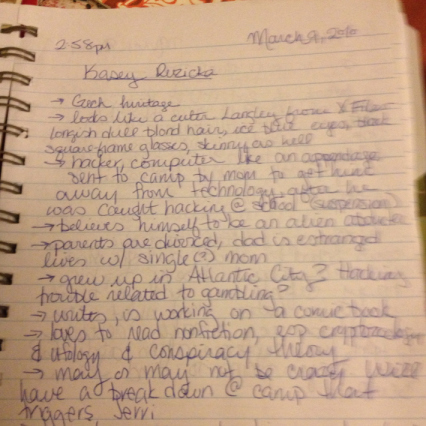 2:58pm March 9, 2010
Kasey Ruzicka
→ Czech heritage
→ looks like a cuter Langley from X Files
longish dull blond hair, ice blue eyes, black
square frame glasses, skinny as hell
→ hacker, computer like an appendage
sent to camp by mom to get him
away from technology after he
was caught hacking @ school (suspension)
→ believes himself to be an alien abductee
→ parents are divorced, dad is estranged
lives w/ single(?) mom
→ grew up in Atlantic City? Hacking
trouble related to gambling?
→ writes, is working on a comic book
→ loves to read nonfiction, esp cryptozoology
& ufology & conspiracy theory
→ may or may not be crazy. Will
have a breakdown @ camp that
triggers Jerri